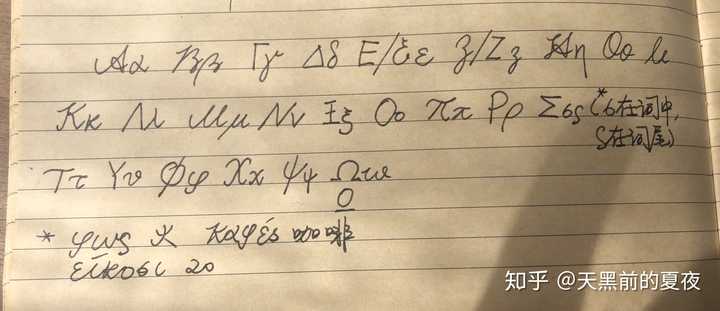 Αα Ββ Γγ Δδ Ε/ξε ʒ/Ζʒ Ηη Θθ Ιι
Κκ Λλ Μμ Νν Ξξ Οο Ππ Ρρ Σσς (*σ在词中,
ς在词尾)
Ττ Υυ Φφ Χχ Ψψ Ωω
Ο
* φως 火 καφές 咖啡
είκοσι 20
知乎 @天黑前的夏夜